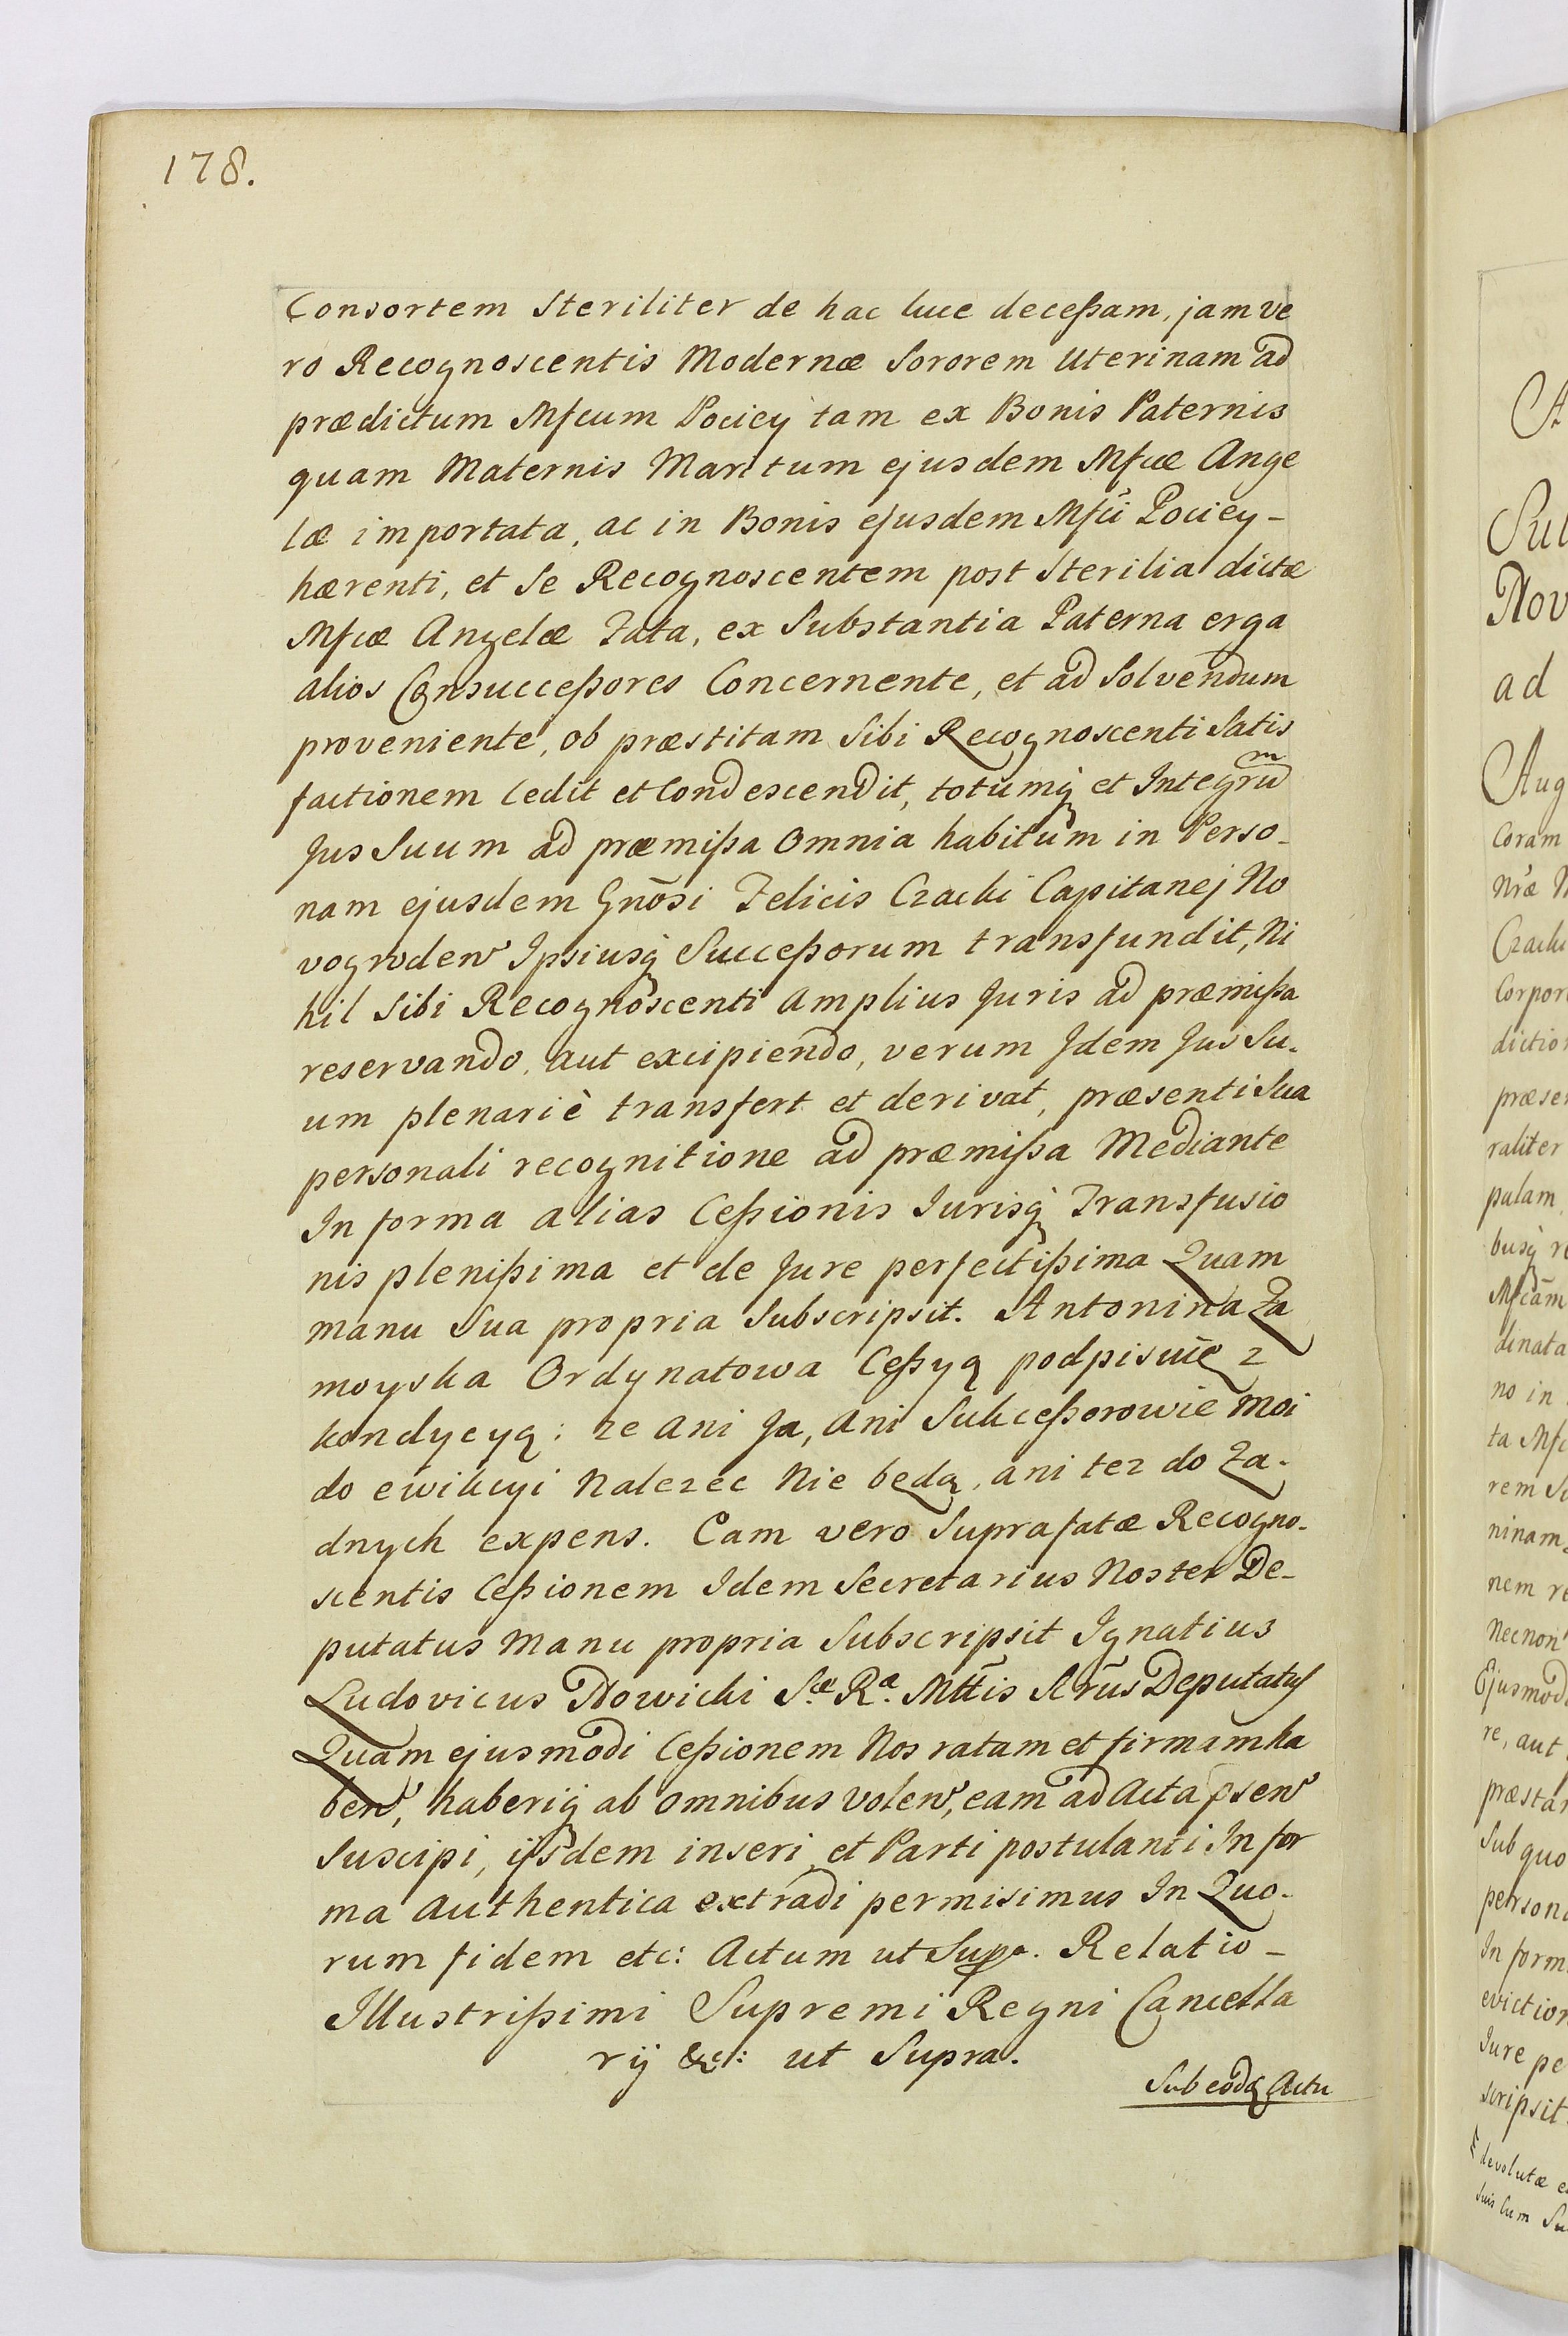 178.
Consortem Steriliter de hac luce deceßam, jam ve
ro Recognoscentis Modernæ Sororem Uterinam ad
prædictum Mfcum Pociey tam ex Bonis Paternis
quam Maternis Maritum ejusdem Mfcæ Ange
læ importata, ac in Bonis ejusdem Mfci Pociey-
hærenti, et Se Recognoscentem post Sterilia dictæ
Mfcæ Angelæ Fata, ex Substantia Paterna erga
alios Consucceßores Concernente, et ad Solvendum
proveniente, ob præstitam Sibi Recognoscenti Satis
factionem Cedit et Condescendit, totumq et Integrum
Jus Suum ad præmißa Omnia habitum in Perso-
nam ejusdem Gnõsi Felicis Czacki Capitanej No
vogroden Ipsiusq Succeßorum transfundit, Ni
hil Sibi Recognoscenti Amplius Juris ad præmißa
reservando, aut excipiendo, verum Idem Jus Su-
um plenariè transfert et derivat, præsenti Sua
personali recognitione ad præmißa Mediante
In forma alias Ceßionis Jurisq Transfusio
nis plenißima et de Jure perfectißima Quam
manu Sua propria Subscripsit. Antonina Za
moyska Ordynatowa Ceßyą podpisuię z
kondycyą: ze ani Ja, ani Sukceßorowie Moi
do ewikcyi Nalezec Nie będą, ani tez do Za-
dnych expens. Eam vero Suprafatæ Recogno-
scentis Ceßionem Idem Secretarius Noster De-
putatus Manu propria Subscripsit Ignatius
Ludovicus Nowicki Sæ Ra. Mttis Srũs Deputatus
Quam ejusmodi Ceßionem Nos ratam et firmam ha
ben, haberiq ab omnibus volen, eam ad Acta psen
Suscipi, ijsdem inseri, et Parti postulanti In for
ma Authentica extradi permisimus In Quo-
rum fidem etc: Actum ut Supa. Relatio-
Illustrißimi Supremi Regni Cancella
rij &c: ut Supra.
Sub eodq Actu
A
Sub
Nov
ad
Aug
Coram
Nræ
Czacki
Corpor
dictio
præsen
raliter
palam
busq re
Mfcãm
dinata
no in
ta Mfc
rem So
ninam
nem re
Necnon
Ejusmodi
re, aut
præstan
Sub quo
persona
In form
eviction
Jure pe
scripsit
devolutæ e
Suis Cum Su